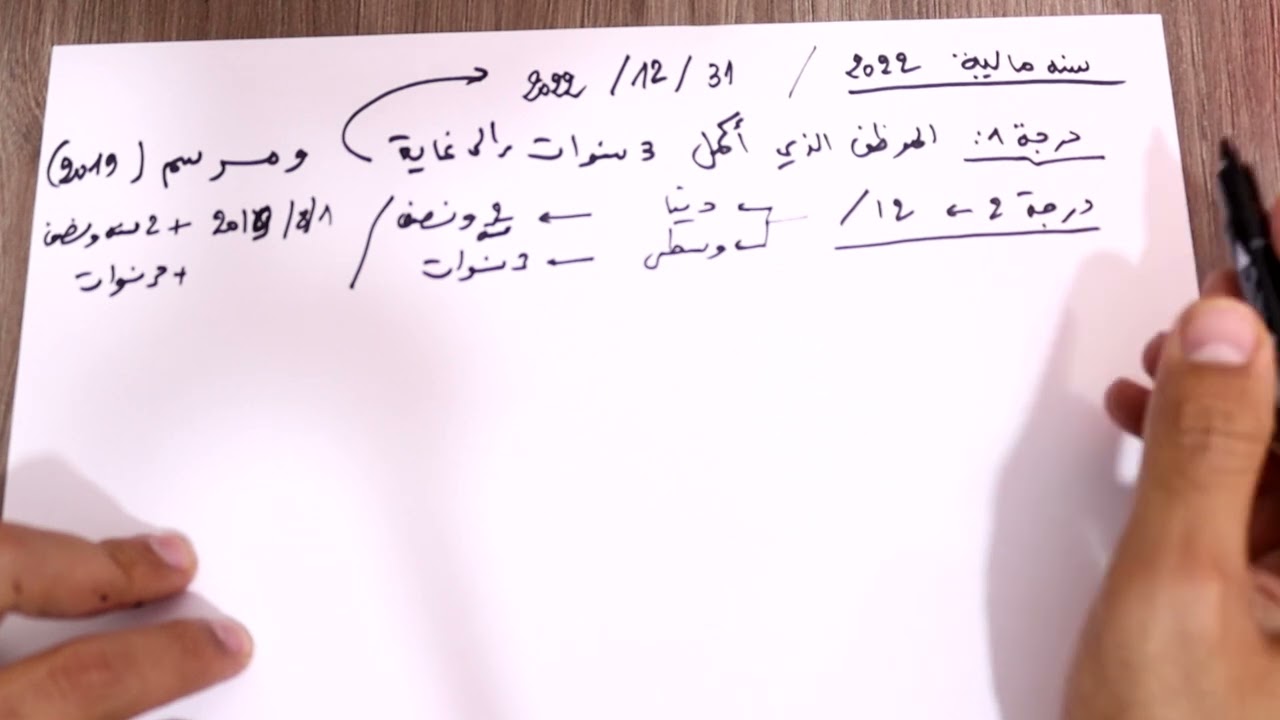 سنه مالية: 2022 / 31 / 12 / 2022
درجة 1: الموظف الذي أكمل 3 سنوات إلى غاية ومرسم (2019)
درجة 2 ← 12 / دنيا ← 2 ونصف / 1/1/2019 + 2 سنه ونصف
وسطى ← 3 سنوات + 3 سنوات